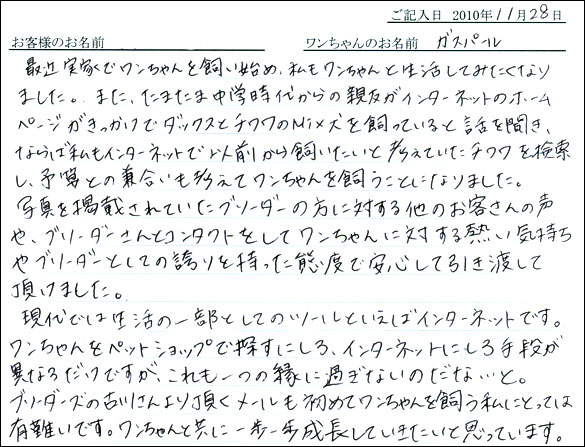 ご記入日 2010年11月28日
お客様のお名前 ワンちゃんのお名前 ガスパール
最近実家でワンちゃんを飼い始め、私もワンちゃんと生活してみたくなり
ました。また、たまたま中学時代からの親友がインターネットのホーム
ページがきっかけでダックスとチワワのMix犬を飼っていると話を聞き、
ならば私もインターネットで以前から飼いたいと考えていたチワワを検索
し、予算との兼合いも考えてワンちゃんを飼うことになりました。
写真を掲載されていたブリーダーの方に対する他のお客さんの声
や、ブリーダーさんとコンタクトをしてワンちゃんに対する熱い気持ち
やブリーダーとしての誇りを持った態度で安心して引き渡して
頂けました。
現代では生活の一部としてのツールといえばインターネットです。
ワンちゃんをペットショップで探すにしろ、インターネットにしろ手段が
異なるだけですが、これも一つの縁に過ぎないのだな…と。
ブリーダーズの古川さんより頂くメールも初めてワンちゃんを飼う私にとっては
有難いです。ワンちゃんと共に一歩一歩成長していきたいと思っています。